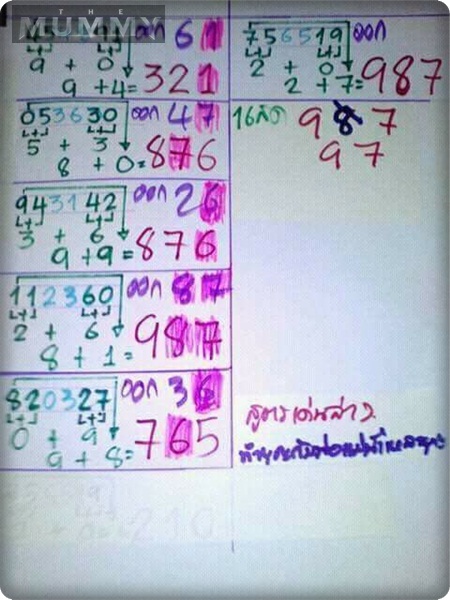 THE
MUMMY
ออก 61
9 + 0
9 + 4 = 321
053630 ออก 47
5 + 3
8 + 0 = 876
943142 ออก 26
3 + 6
9 + 9 = 876
112360 ออก 87
2 + 6
8 + 1 = 987
820327 ออก 36
0 + 9
9 + 8 = 765
756519 ออก
2 + 0
2 + 7 = 987
987
97
สูตรเด่นล่าง